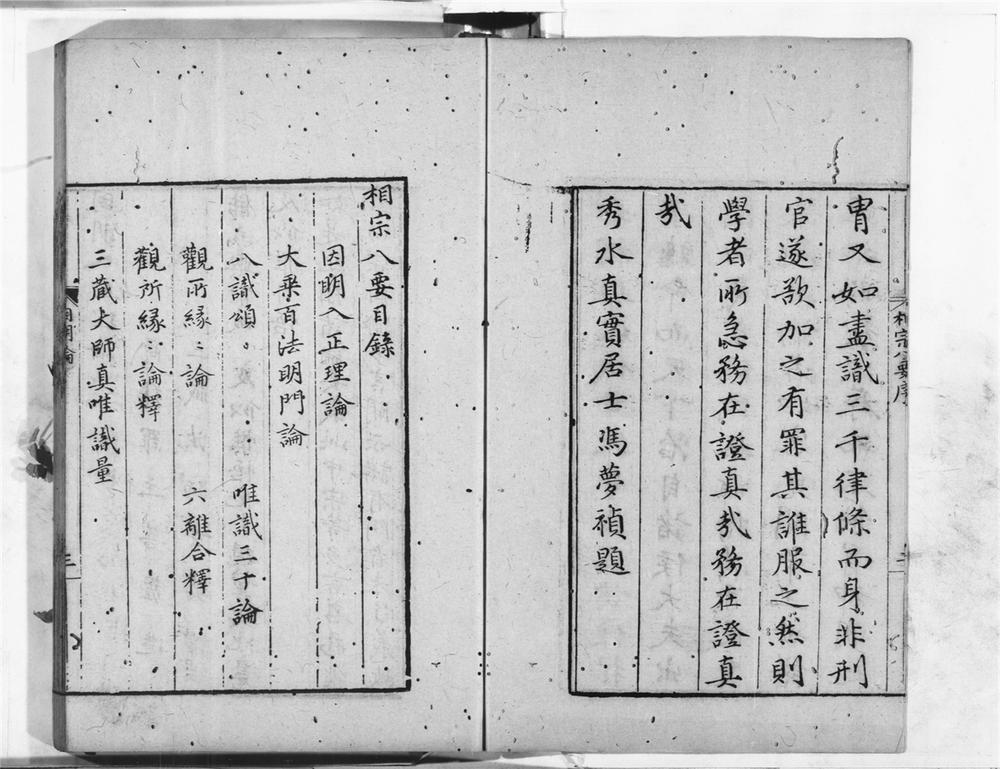 相宗八要序
冑又如盡識三千律條而身非刑
官遂欲加之有罪其誰服之然則
學者所急務在證真㦲務在證真
㦲
秀水真實居士馮夢禎題
相宗八要目錄
因明入正理論
大乗百法明門論
八識頌。　唯識三十論
觀所緣〻論　六離合釋
觀所緣〻論釋
三藏大師真唯識量
因明論
三